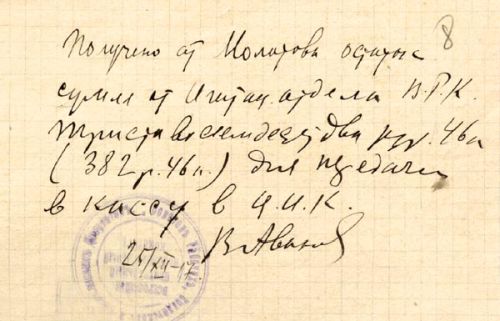 8
Получено от Молотова остаток
суммы от Агитац. отдела В.Р.К.
триста восемьдесят два руб. 46 к
(382 р. 46 к.) для передачи
в кассу в Ц.И.К.
В. Аванесов
25/XII-17.